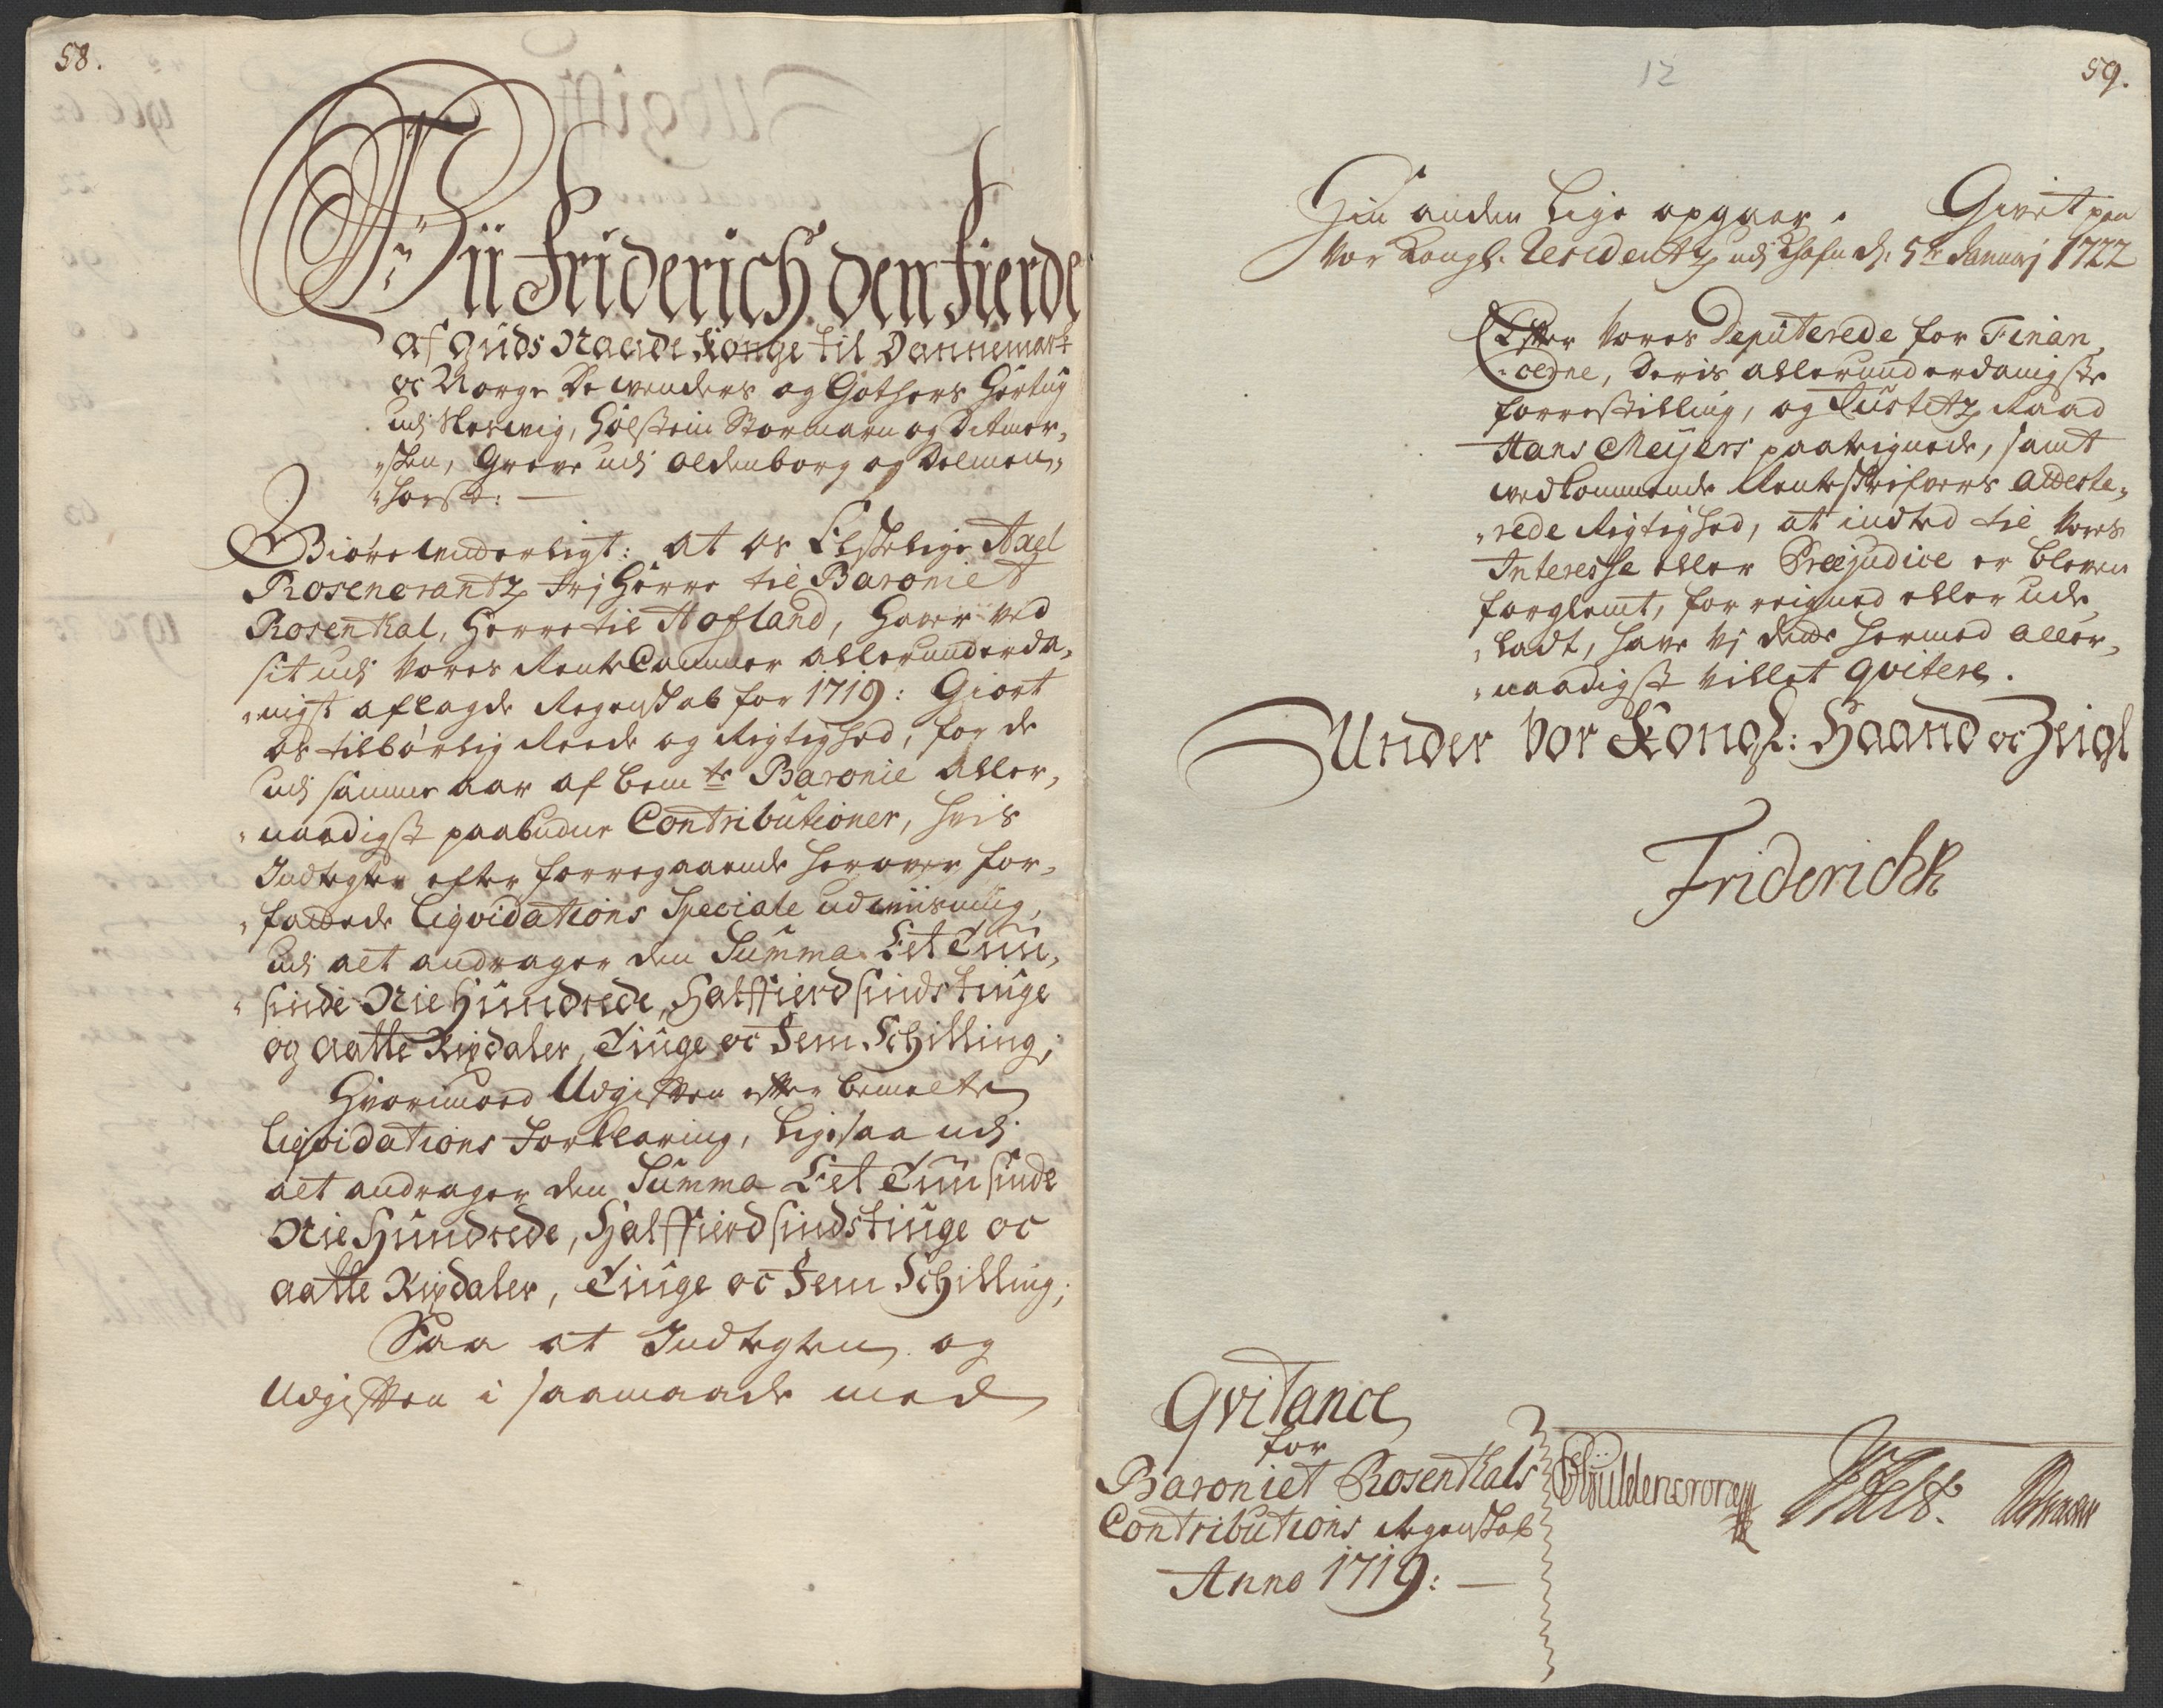 58.
Vii Friderich den Fierde
af Guds Naade Konge til Dannemark
oc Norge De wenders og Gothers Hertug
udj Slesvig, Holstein Stormarn og Ditmer„
„sken, Greve udj Oldenborg og Delmen„
„horst: —
Giöre Vitterligt: At Os Elskelige Axel
Rosencrantz Frj Herre til Baroniet
Rosenthal, Herre til Hofland, Haver ved
sit udj Vores Rente Cammer allerunderda„
„nigst aflagde Regenskab for 1719: Giort
os tilbörlig Reede og Rigtighed, for de
udj samme aar af bemte Baronie aller„
„naadigst paabudne Contributioner, hvis
Indtegter efter forregaaende herover for„
„fattede Liqvidations Speciale udviisning,
udj alt andrager den Summa Eet Tuu„
„sinde Nie Hundrede, Halffierdsindstiuge
og Aatte Rixdaler, Tiuge oc Fem Schilling;
Hvorimod Udgiften efter bemelte
Liqvidations Forklaring, ligesaa udj
alt andrager den Summa Eet Tuusinde
Nie Hundrede, Halffierdsindstiuge oc
Aatte Rixdaler, Tiuge oc Fem Schilling;
Saa at Indtegten og
Udgiften i saamaade med
12
59.
Hin anden lige opgaaer. Givet paa
Vor Kongl. Residentz udj Khafn d: 5te Januarj 1722
Efter Vores Deputerede for Finan„
„cerne, Deris allerunderdanigste
forrestilling, og Justitz Raad
Hans Meyers paategnede, samt
vedkommende Rentskrifvers Atteste„
„rede Rigtighed, at indtet til Vores
Interesse eller Præjudice er bleven
forglemt, forreignet eller ude„
„ladt, have Vj dette hermed Aller„
„naadigst villet qvitere.
Under Vor Kongl: Haand oc Zeigl
Friderich R
Qvitance
for
Baroniet Rosenthals
Contributions Regenskab
Anno 1719: —
Güldencrone